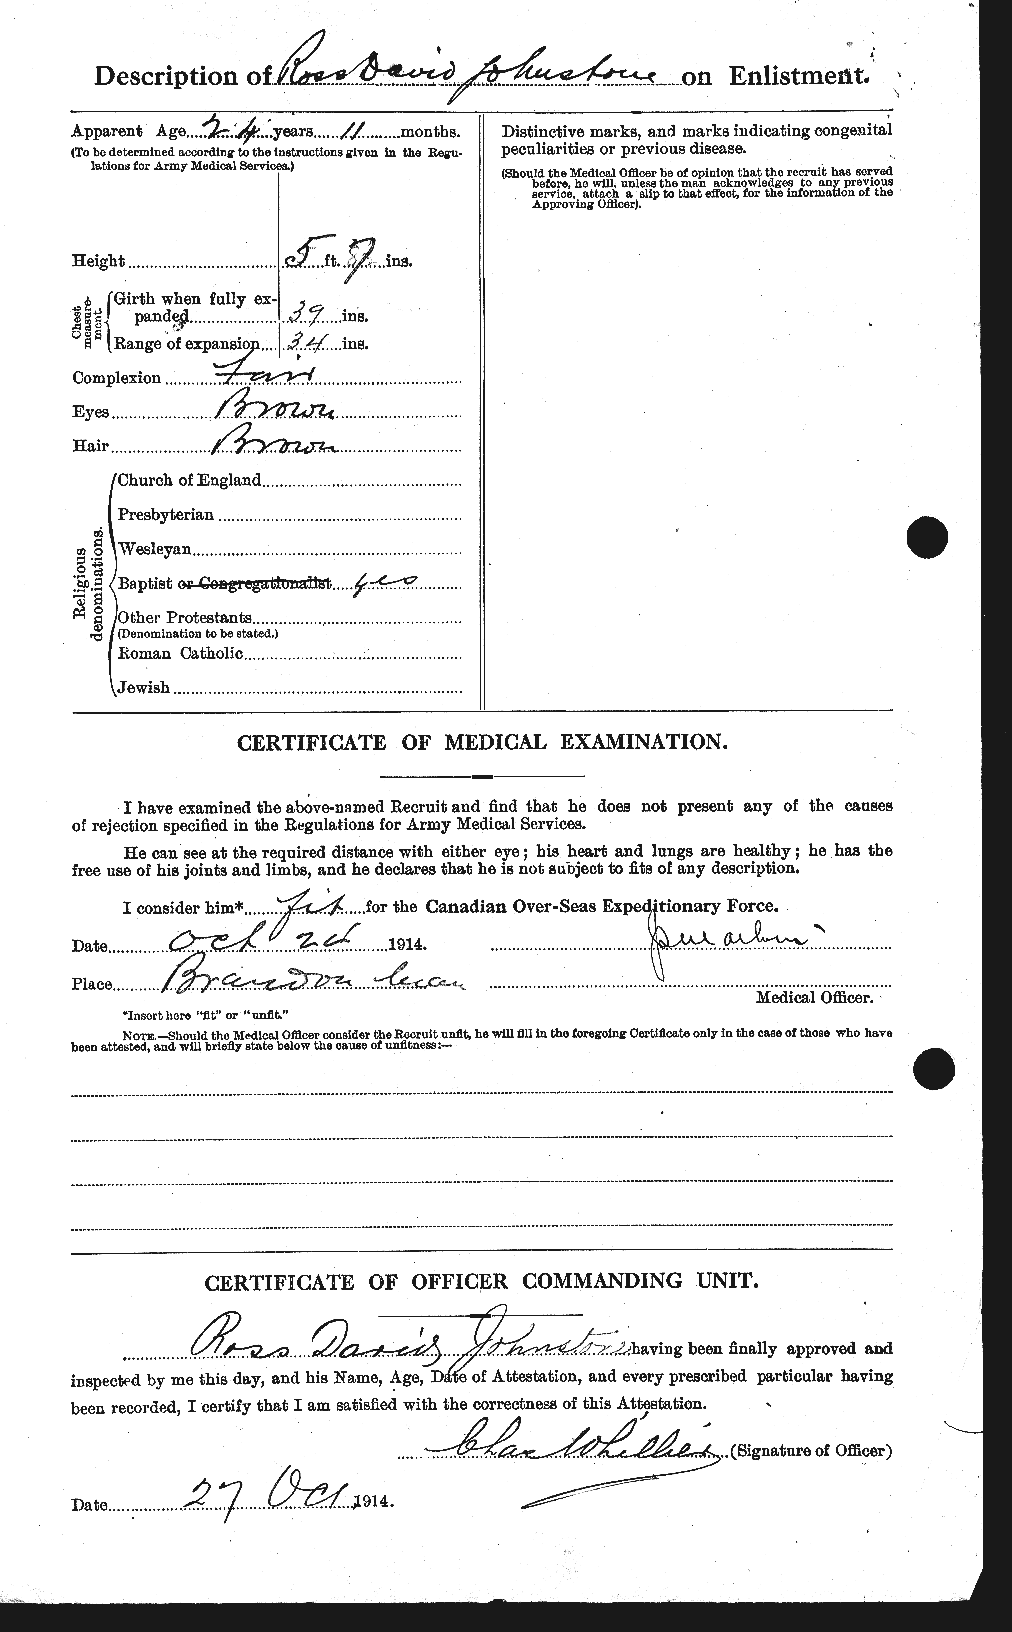 Description of Ross David Johnstone on Enlistment.
Apparent Age 24 years 11 months.
(To be determined according to the instructions given in the Regu-
lations for Army Medical Services.)
Height 5 ft. 7 ins.
Chest measure-ment
Girth when fully ex-
panded 39 ins.
Range of expansion 34 ins.
Complexion Fair
Eyes Brown
Hair Brown
Religious denominations.
Church of England
Presbyterian
Wesleyan
Baptist or Congregationalist yes
Other Protestants
(Denomination to be stated.)
Roman Catholic
Jewish
Distinctive marks, and marks indicating congenital
peculiarities or previous disease.
(Should the Medical Officer be of opinion that the recruit has served
before, he will, unless the man acknowledges to any previous
service, attach a slip to that effect, for the information of the
Approving Officer).
CERTIFICATE OF MEDICAL EXAMINATION.
I have examined the above-named Recruit and find that he does not present any of the causes
of rejection specified in the Regulations for Army Medical Services.
He can see at the required distance with either eye; his heart and lungs are healthy; he has the
free use of his joints and limbs, and he declares that he is not subject to fits of any description.
I consider him* fit for the Canadian Over-Seas Expeditionary Force.
Date Oct 24 1914.
Place Brandon Man
Medical Officer.
*Insert here "fit" or "unfit."
NOTE.—Should the Medical Officer consider the Recruit unfit, he will fill in the foregoing Certificate only in the case of those who have
been attested, and will briefly state below the cause of unfitness:—
CERTIFICATE OF OFFICER COMMANDING UNIT.
Ross David Johnstone having been finally approved and
inspected by me this day, and his Name, Age, Date of Attestation, and every prescribed particular having
been recorded, I certify that I am satisfied with the correctness of this Attestation.
Chas Whillier (Signature of Officer)
Date 27 Oct 1914.